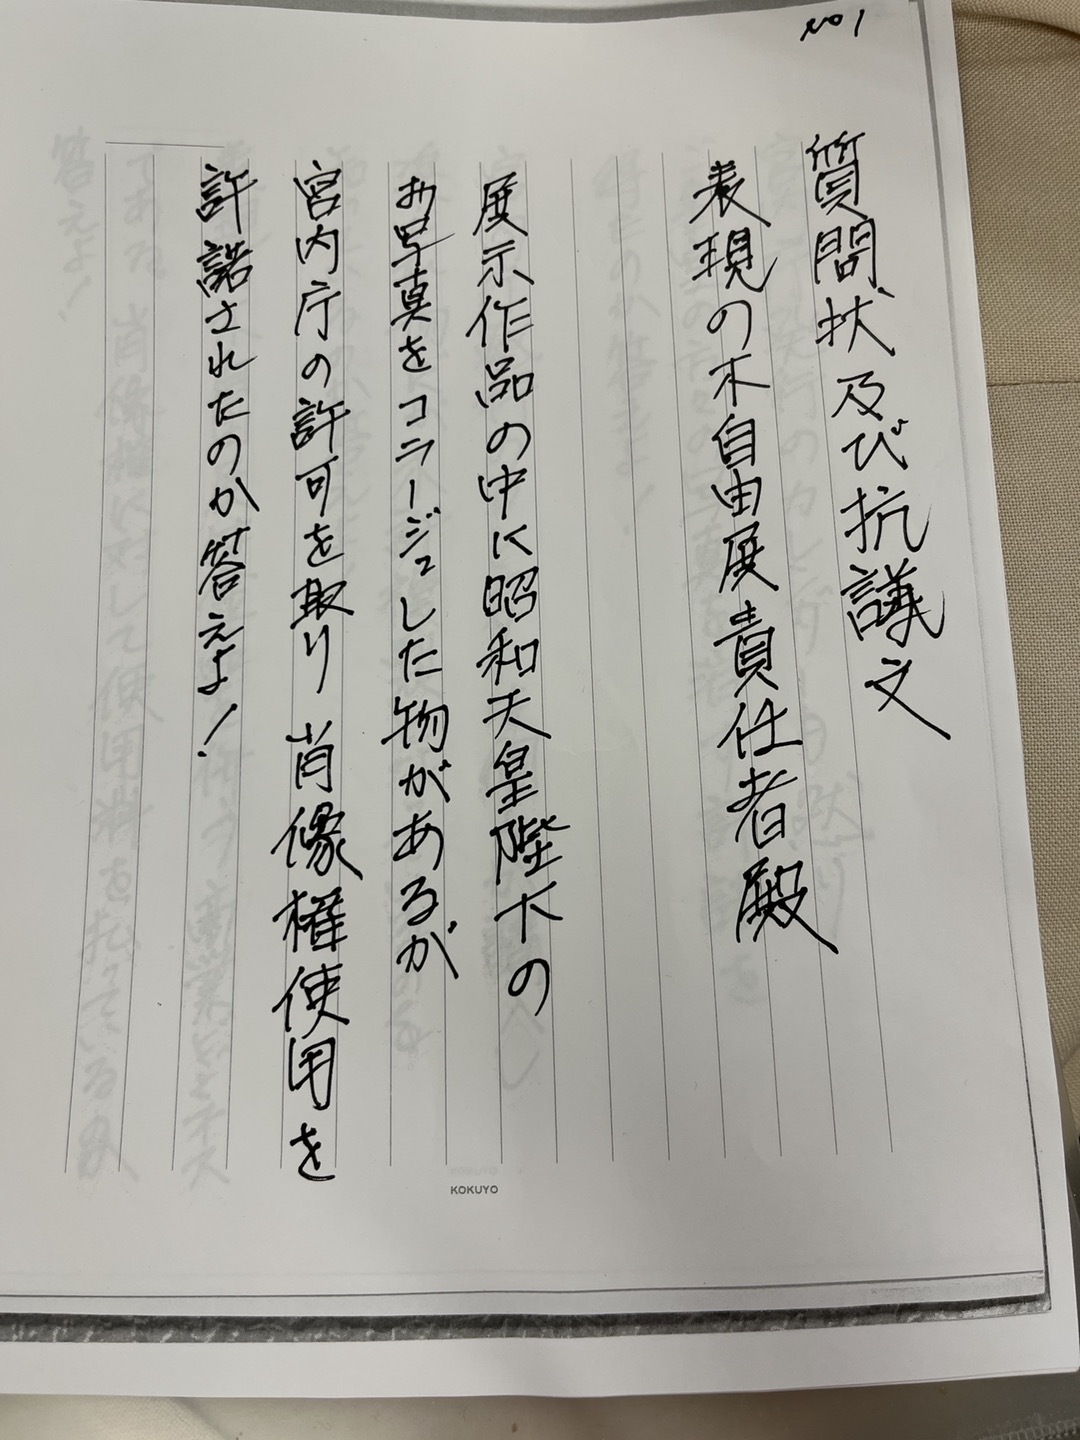 No1
質問状及び抗議文
表現の不自由展責任者殿
展示作品の中に昭和天皇陛下の
お写真をコラージュした物があるが
宮内庁の許可を取り肖像権使用を
許諾されたのか答えよ!
KOKUYO